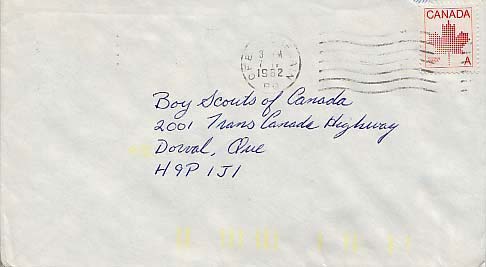 CANADA
A
1982
Boy Scouts of Canada
2001 Trans Canada Highway
Dorval, Que
H9P 1J1